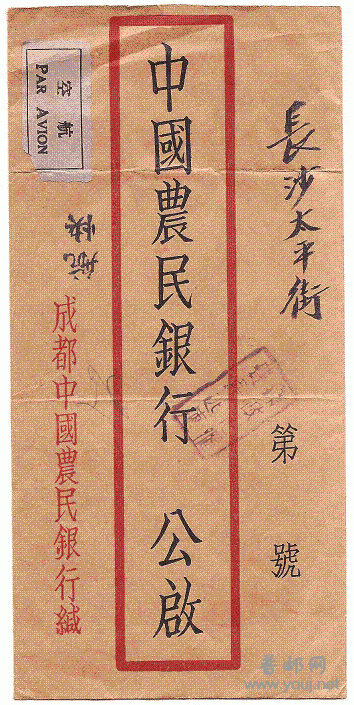 長沙太平街
第 號
中國農民銀行 公啟
航空
PAR AVION
航快
成都中國農民銀行緘
www.youj.net